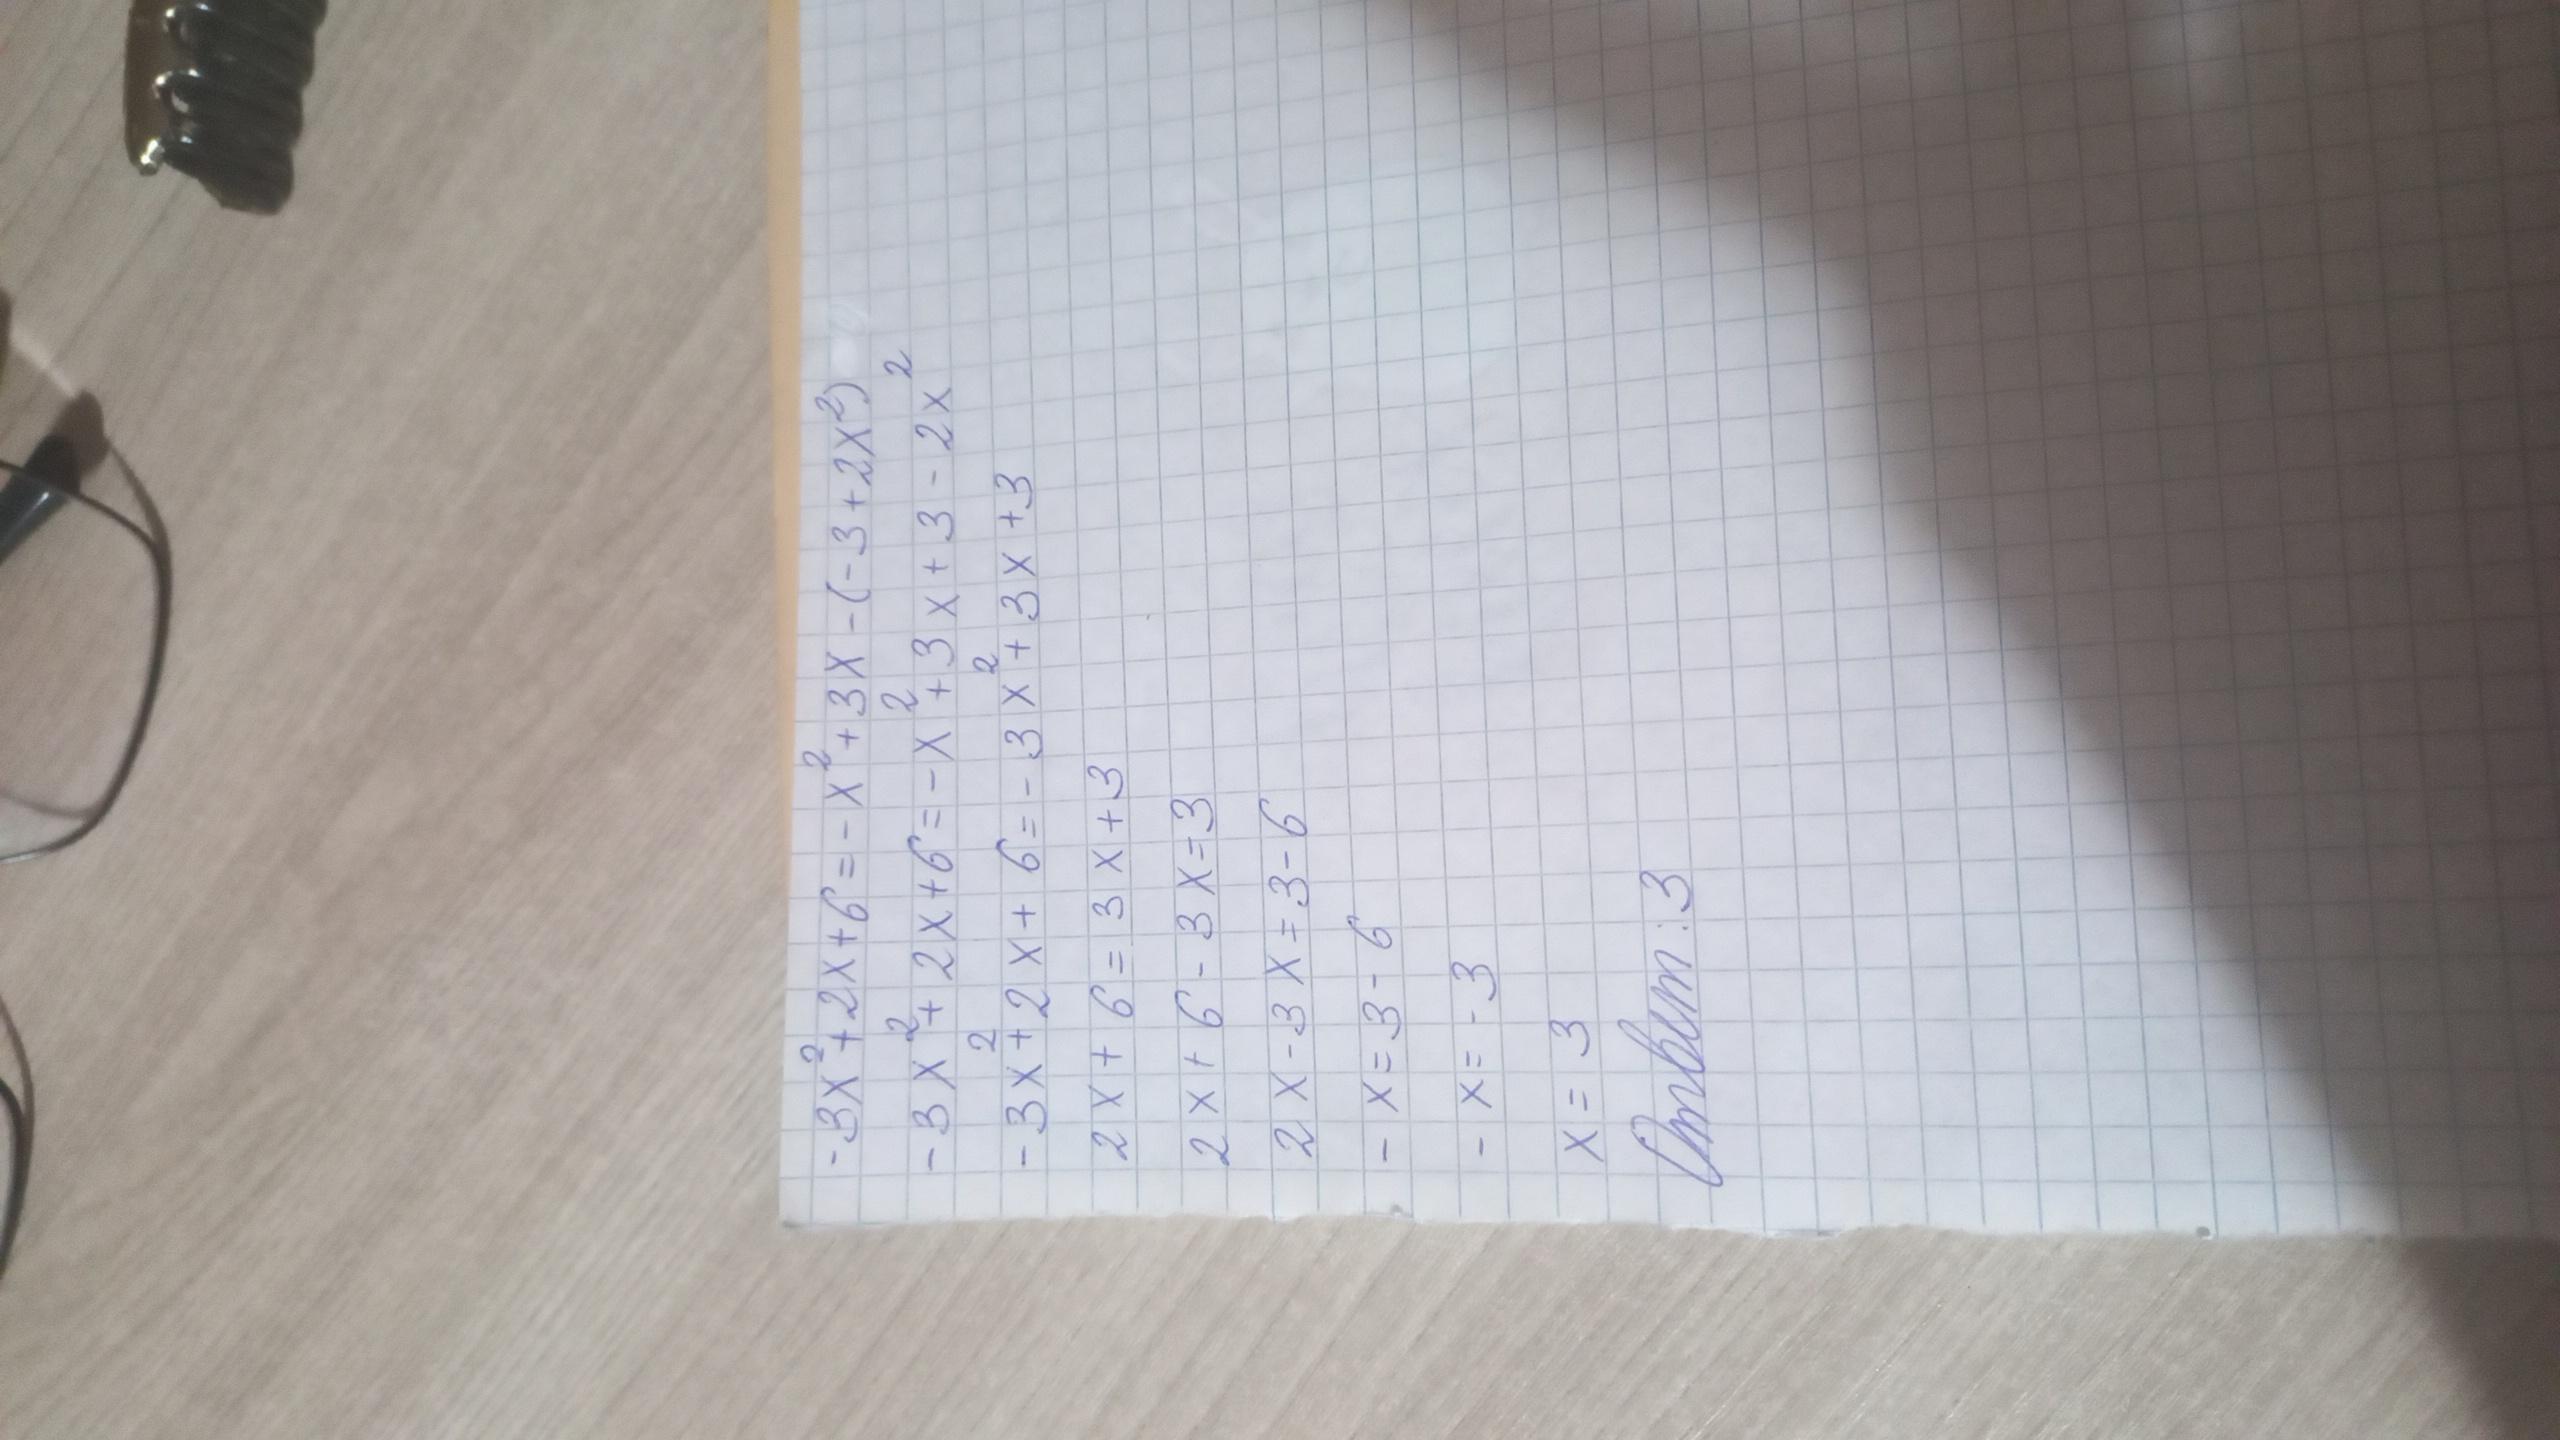 -3x²+2x+6=-x²+3x-(-3+2x²)
-3x²+2x+6=-x²+3x+3-2x²
-3x²+2x+6=-3x²+3x+3
2x+6=3x+3
2x+6-3x=3
2x-3x=3-6
-x=3-6
-x=-3
x=3
Ответ:3